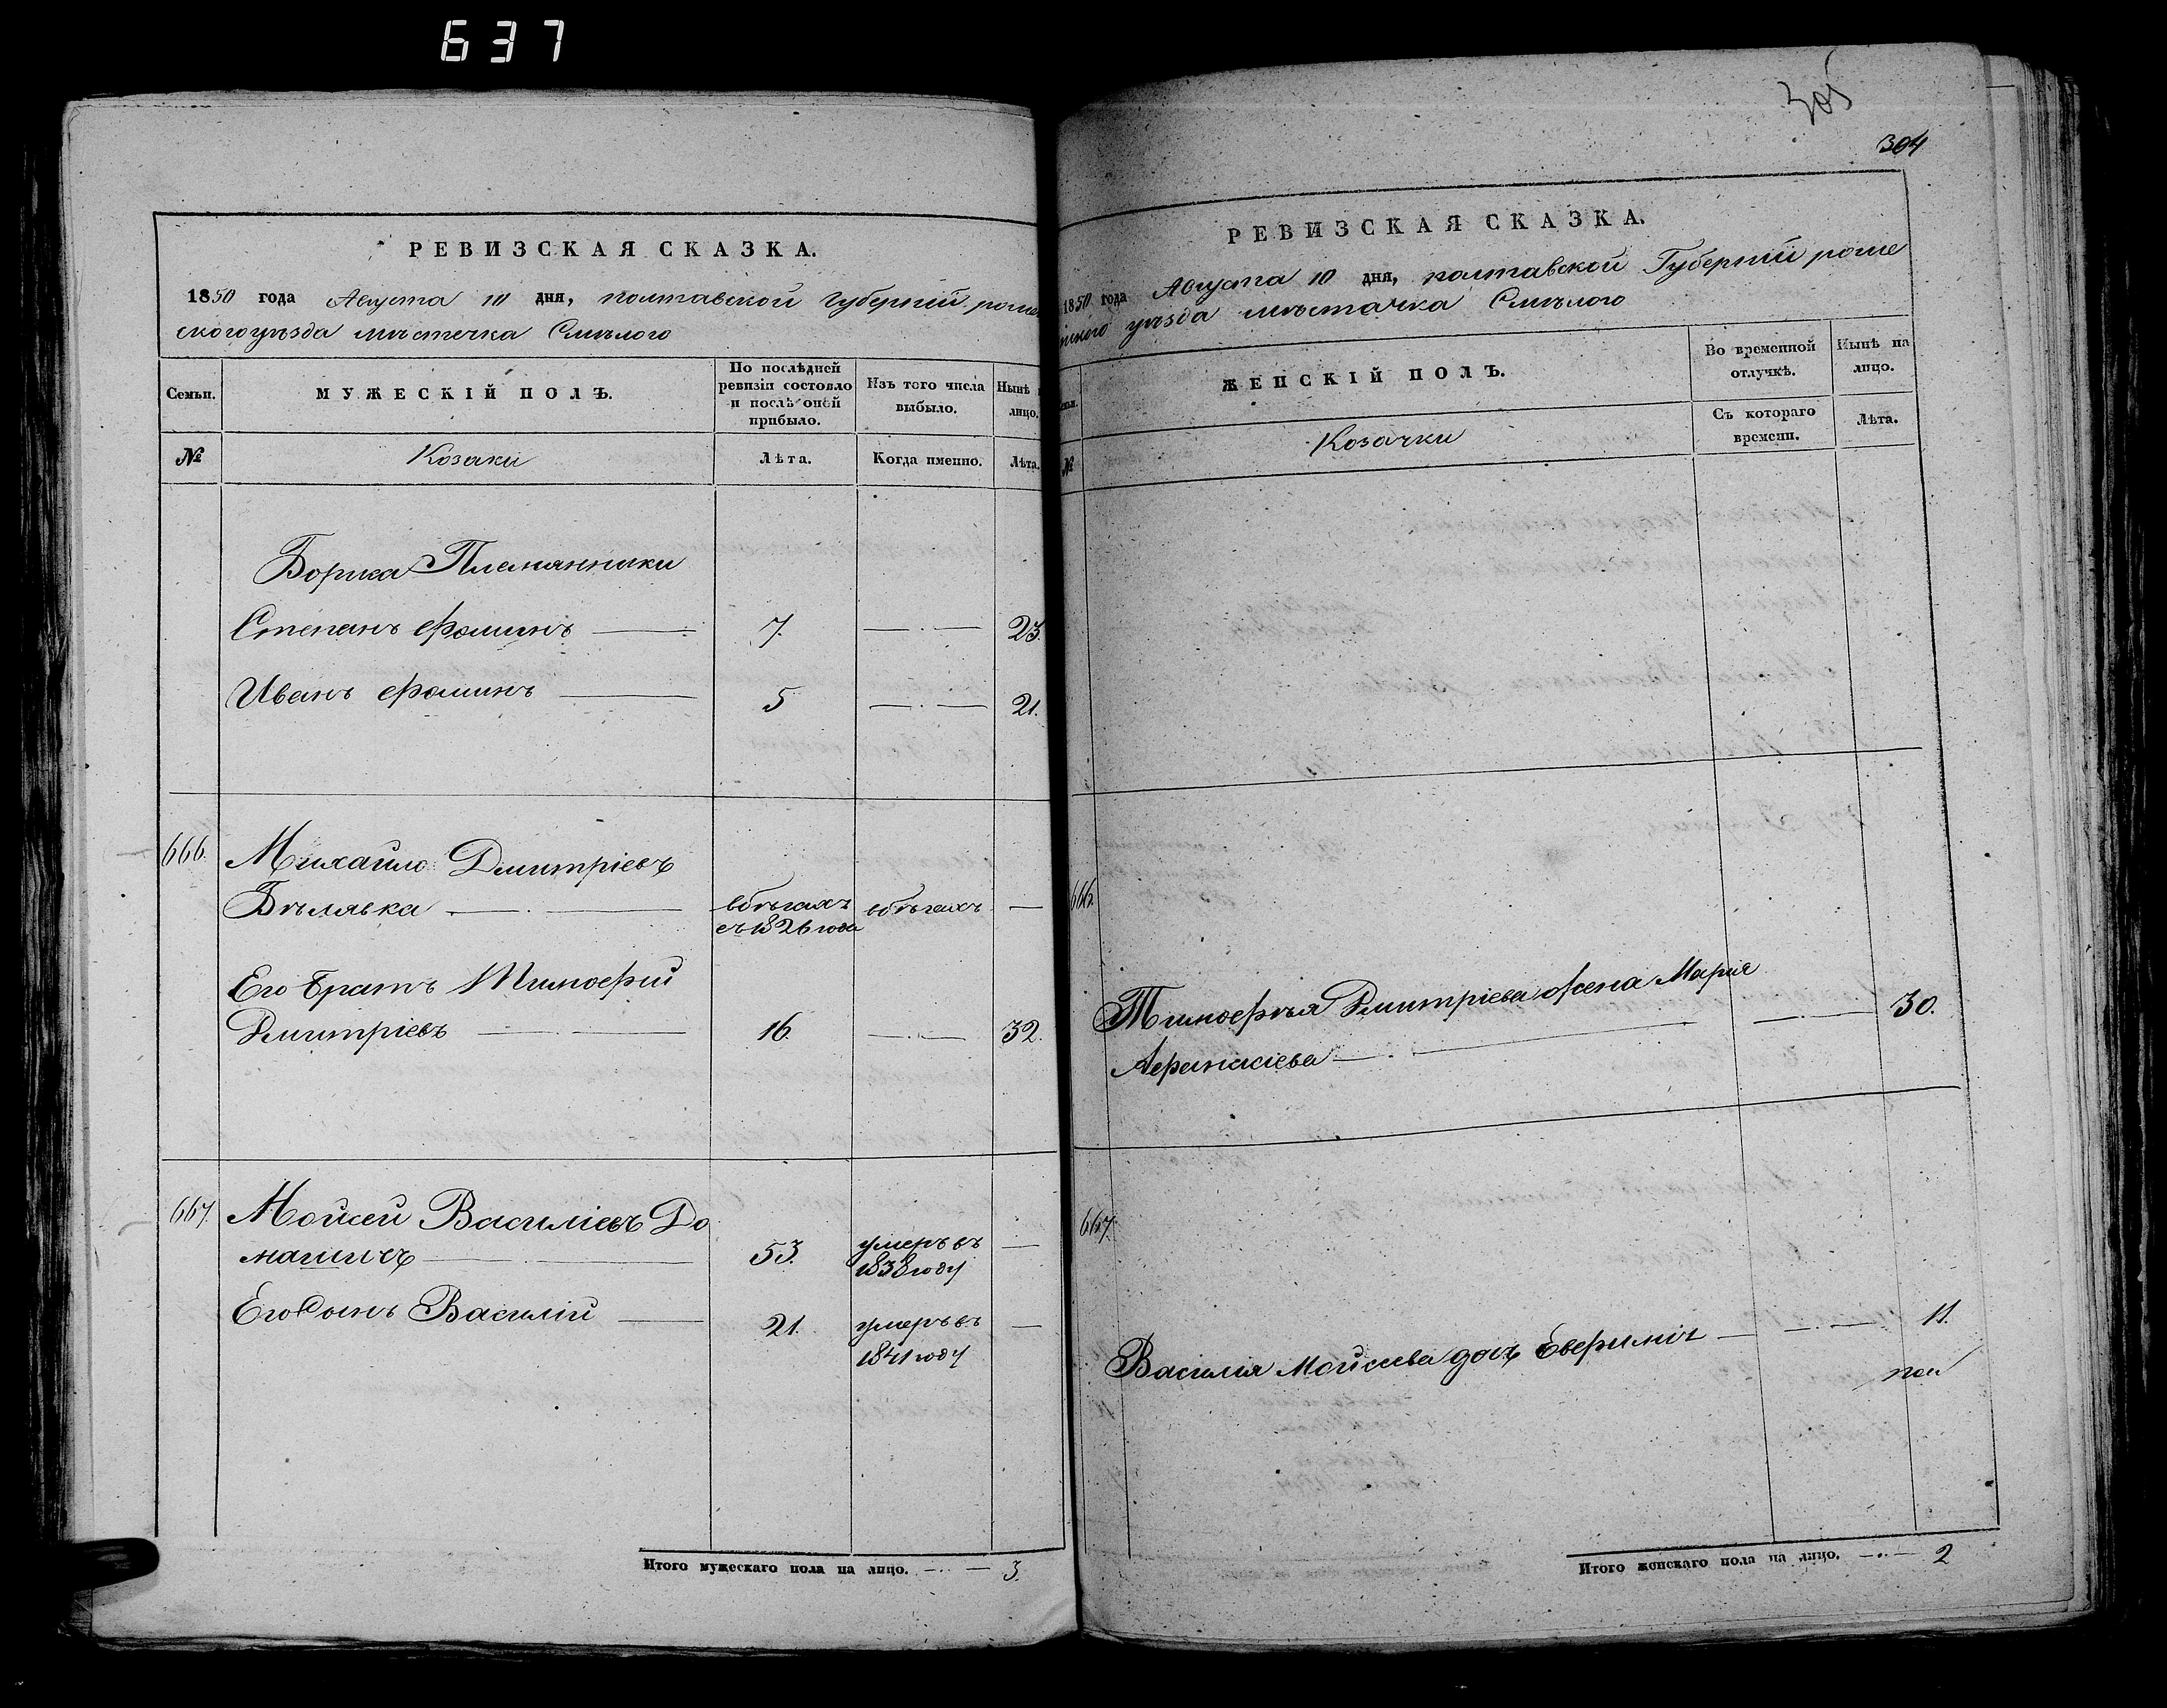 637
РЕВИЗСКАЯ СКАЗКА.
1850 года Августа 10 дня, полтавской Губерніи роме
ского уѣзда мѣстечка Смѣлого
Семьи.
МУЖЕСКІЙ ПОЛЪ.
По послѣдней ревизіи состояло и послѣ оной прибыло.
Изъ того числа выбыло.
Нынѣ лицо.
№
Козаки
Лѣта.
Когда именно.
Лѣта.
Бориса Племянники
Степанъ Фоминъ 7. 23.
Иванъ Фоминъ 5 21.
666. Михайло Дмитріевъ
Бѣлявка вбѣгахъ вбѣгахъ
съ 1826 года
Его братъ Тимофій
Дмитріевъ 16. 32.
667. Мойсей Василіевъ До
машичъ 53. умеръ въ
1838 году
Его Сынъ Василій 21. умеръ въ
1841 году
Итого мужескаго пола на лицо. 3.
305
304
РЕВИЗСКАЯ СКАЗКА.
1850 года Августа 10 дня, полтавской Губерніи роме
нского уѣзда мѣстачка Смѣлого
ЖЕНСКІЙ ПОЛЪ.
Во временной отлучкѣ.
Нынѣ на лицо.
№
Козачки
Съ котораго времени.
Лѣта.
666.
Тимофѣя Дмитріева жена Марія 30.
Афанасіева
667.
Василія Мойсеева дочъ Евфимія 11.
Итого женскаго пола на лицо. 2